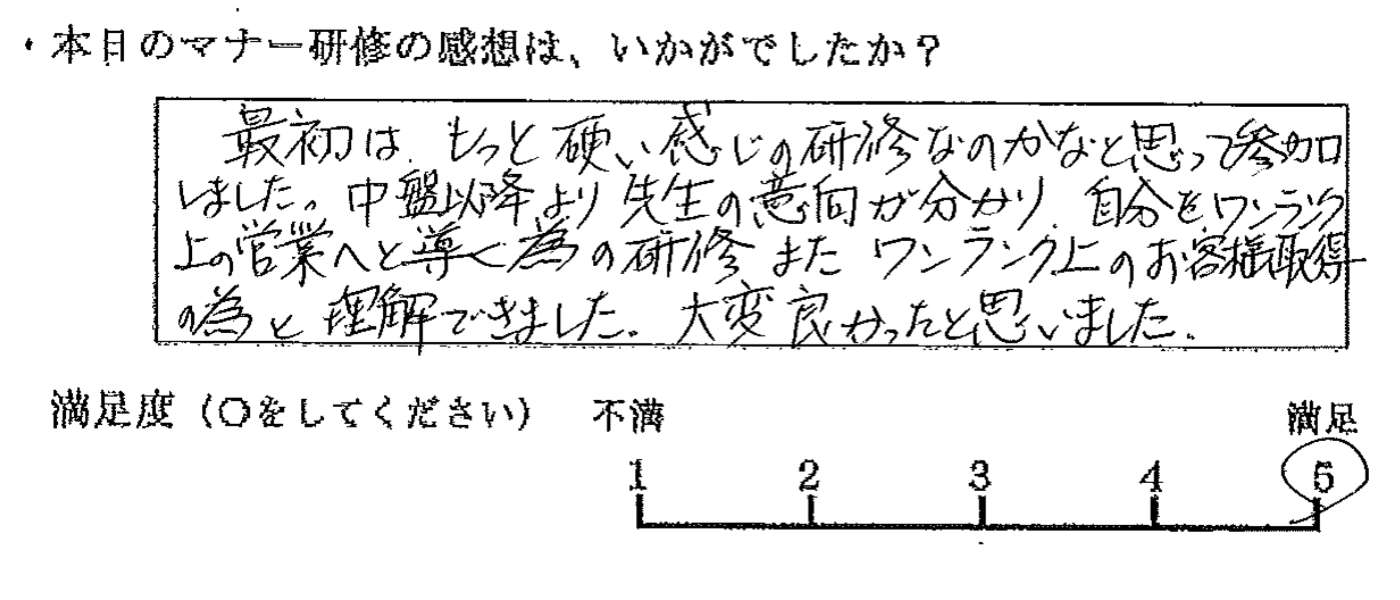 ・本日のマナー研修の感想は、いかがでしたか？
最初は、もっと硬い感じの研修なのかなと思って参加
しました。中盤以降より先生の意向が分かり、自分をワンランク
上の営業へと導く為の研修 また ワンランク上のお客様取得
の為と理解できました。大変良かったと思いました。
満足度（○をしてください） 不満 満足
1 2 3 4 5